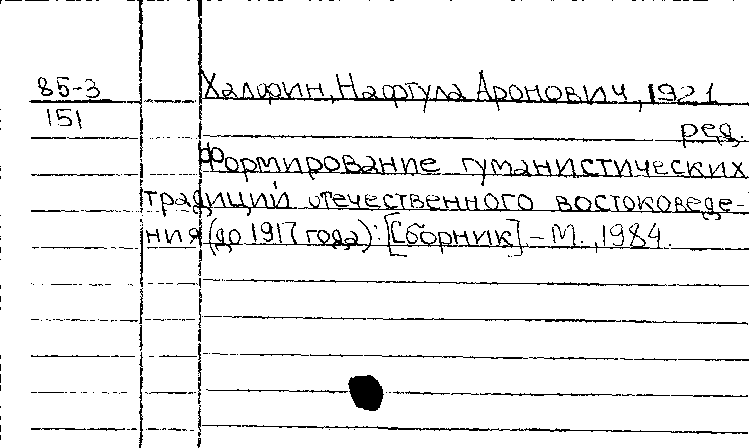 85-3 Халфин, Нафтула Аронович, 1921
151 ред.
Формирование гуманистических
традиций отечественного востоковеде-
ния (до 1917 года): [Сборник] - М., 1984.